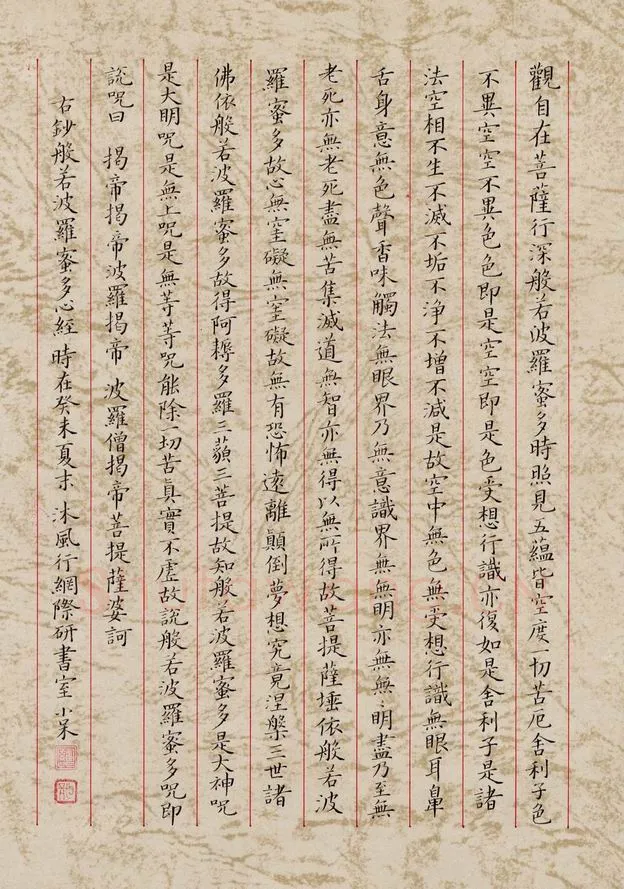 觀自在菩薩行深般若波羅蜜多時照見五蘊皆空度一切苦厄舍利子色
不異空空不異色色即是空空即是色受想行識亦復如是舍利子是諸
法空相不生不滅不垢不淨不增不減是故空中無色無受想行識無眼耳鼻
舌身意無色聲香味觸法無眼界乃無意識界無無明亦無無〻明盡乃至無
老死亦無老死盡無苦集滅道無智亦無得以無所得故菩提薩埵依般若波
羅蜜多故心無罣礙無罣礙故無有恐怖遠離顛倒夢想究竟涅槃三世諸
佛依般若波羅蜜多故得阿耨多羅三藐三菩提故知般若波羅蜜多是大神咒
是大明咒是無上咒是無等等咒能除一切苦真實不虛故說般若波羅蜜多咒即
說咒曰 揭帝揭帝波羅揭帝 波羅僧揭帝菩提薩婆訶
右鈔般若波羅蜜多心經 時在癸未夏末 沐風行網際研書室 小呆